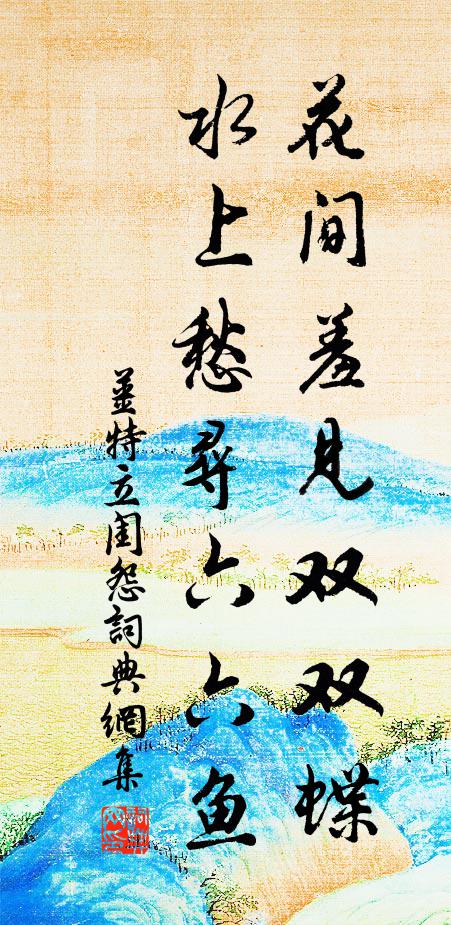 花间羞见双双蝶
水上愁寻六六鱼
姜特立闺怨詞典網集